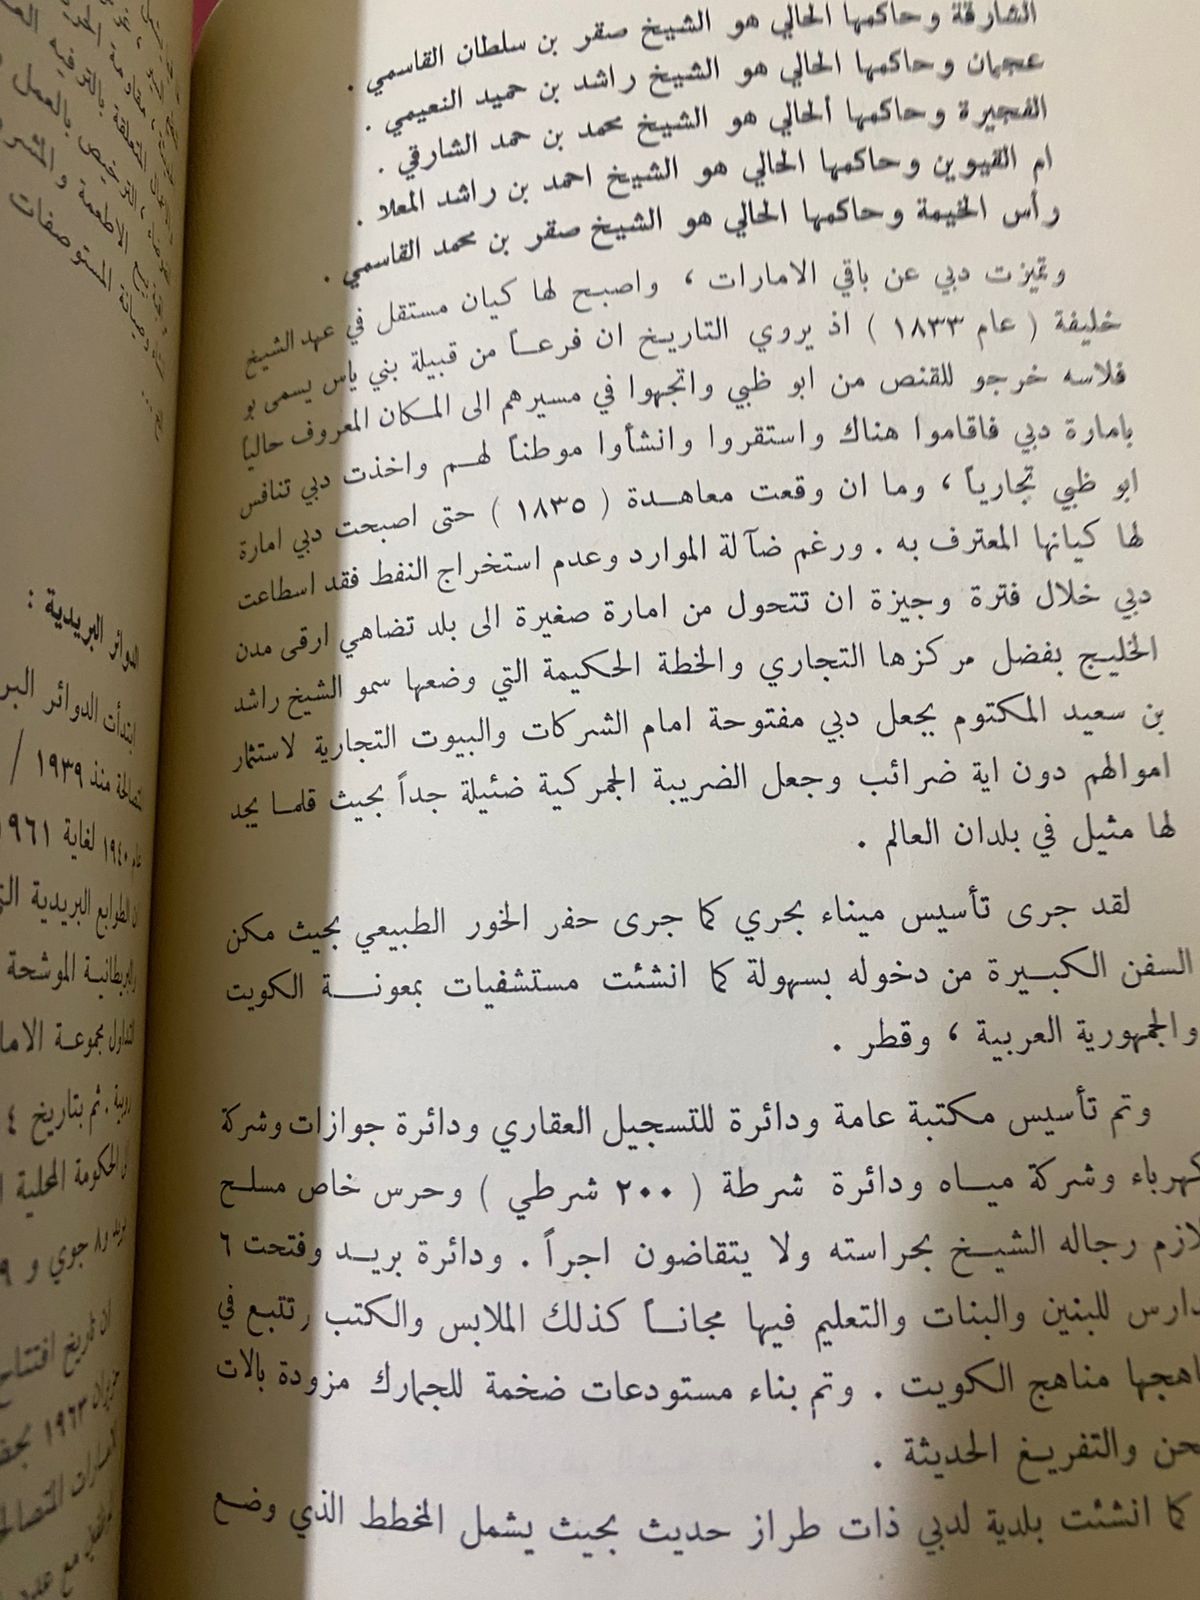 الشارقة وحاكمها الحالي هو الشيخ صقر بن سلطان القاسمي .
عجمان وحاكمها الحالي هو الشيخ راشد بن حميد النعيمي .
الفجيرة وحاكمها الحالي هو الشيخ محمد بن حمد الشارقي .
ام القيوين وحاكمها الحالي هو الشيخ احمد بن راشد المعلا .
رأس الخيمة وحاكمها الحالي هو الشيخ صقر بن محمد القاسمي .
وتميزت دبي عن باقي الامارات ، واصبح لها كيان مستقل في عهد الشيخ
خليفة ( عام ١٨٣٣ ) اذ يروي التاريخ ان فرعاً من قبيلة بني ياس يسمى بو
فلاسه خرجو للقنص من ابو ظبي واتجهوا في مسيرهم الى المكان المعروف حالياً
بامارة دبي فاقاموا هناك واستقروا وانشأوا موطناً لهم واخذت دبي تنافس
ابو ظبي تجارياً ، وما ان وقعت معاهدة ( ١٨٣٥ ) حتى اصبحت دبي امارة
لها كيانها المعترف به . ورغم ضآلة الموارد وعدم استخراج النفط فقد اسطاعت
دبي خلال فترة وجيزة ان تتحول من امارة صغيرة الى بلد تضاهي ارقى مدن
الخليج بفضل مركزها التجاري والخطة الحكيمة التي وضعها سمو الشيخ راشد
بن سعيد المكتوم بجعل دبي مفتوحة امام الشركات والبيوت التجارية لاستثمار
اموالهم دون اية ضرائب وجعل الضريبة الجمركية ضئيلة جداً بحيث قلما يجد
لها مثيل في بلدان العالم .
لقد جرى تأسيس ميناء بحري كما جرى حفر الخور الطبيعي بحيث مكن
السفن الكبيرة من دخوله بسهولة كما انشئت مستشفيات بمعونة الكويت
والجمهورية العربية ، وقطر .
وتم تأسيس مكتبة عامة ودائرة للتسجيل العقاري ودائرة جوازات وشركة
كهرباء وشركة مياه ودائرة شرطة ( ٢٠٠ شرطي ) وحرس خاص مسلح
رجاله الشيخ بحراسته ولا يتقاضون اجراً . ودائرة بريد وفتحت ٦
للبنين والبنات والتعليم فيها مجاناً كذلك الملابس والكتب تتبع في
مناهج الكويت . وتم بناء مستودعات ضخمة للجمارك مزودة بالات
والتفريغ الحديثة .
كما انشئت بلدية لدبي ذات طراز حديث بحيث يشمل المخطط الذي وضع
الدوائر البريدية :
ابتدأت الدوائر
منذ ١٩٣٩ /
١٩٤٠ لغاية
الطوابع البريدية
الموشحة
ثم بتاريخ
الحكومة المحلية